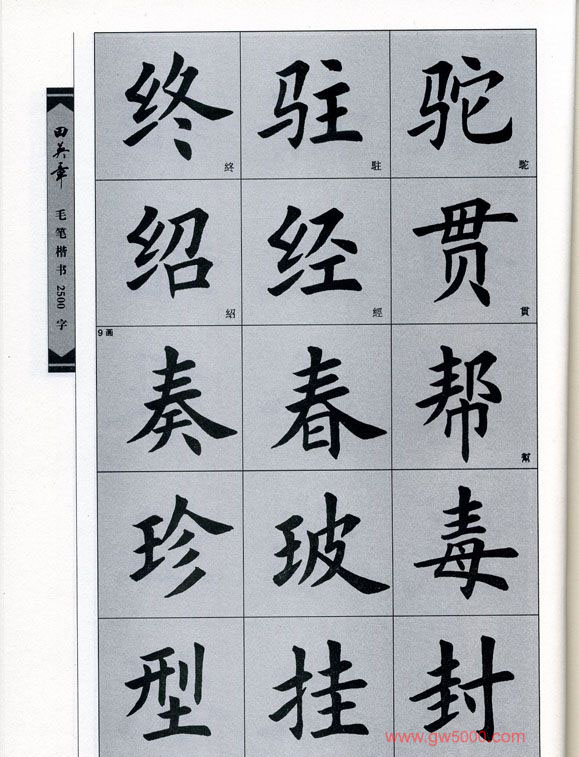 田英章
毛笔楷书2500字
终 驻 驼
終 駐 駝
绍 经 贯
紹 經 貫
9画
奏 春 帮
幫
珍 玻 毒
型 挂 封
www.gw5000.com